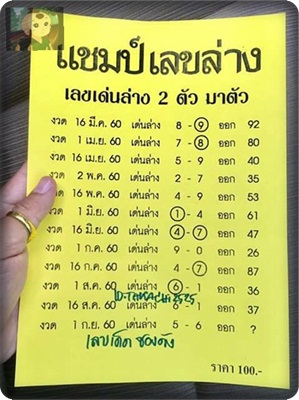 แชมป์เลขล่าง
เลขเด่นล่าง 2 ตัว มาตัว
งวด 16 มี.ค. 60 เด่นล่าง 8 - 9 ออก 92
งวด 1 เม.ย. 60 เด่นล่าง 7 - 8 ออก 80
งวด 16 เม.ย. 60 เด่นล่าง 5 - 9 ออก 40
งวด 2 พ.ค. 60 เด่นล่าง 2 - 7 ออก 35
งวด 16 พ.ค. 60 เด่นล่าง 4 - 9 ออก 53
งวด 1 มิ.ย. 60 เด่นล่าง 1 - 4 ออก 61
งวด 16 มิ.ย. 60 เด่นล่าง 4 - 7 ออก 47
งวด 1 ก.ค. 60 เด่นล่าง 9 - 0 ออก 26
งวด 16 ก.ค. 60 เด่นล่าง 4 - 7 ออก 87
งวด 1 ส.ค. 60 เด่นล่าง 6 - 1 ออก 36
งวด 16 ส.ค. 60 เด่นล่าง 6 - 1 ออก 37
งวด 1 ก.ย. 60 เด่นล่าง 5 - 6 ออก ?
เลขเด็ด ซองดัง
ราคา 100.-